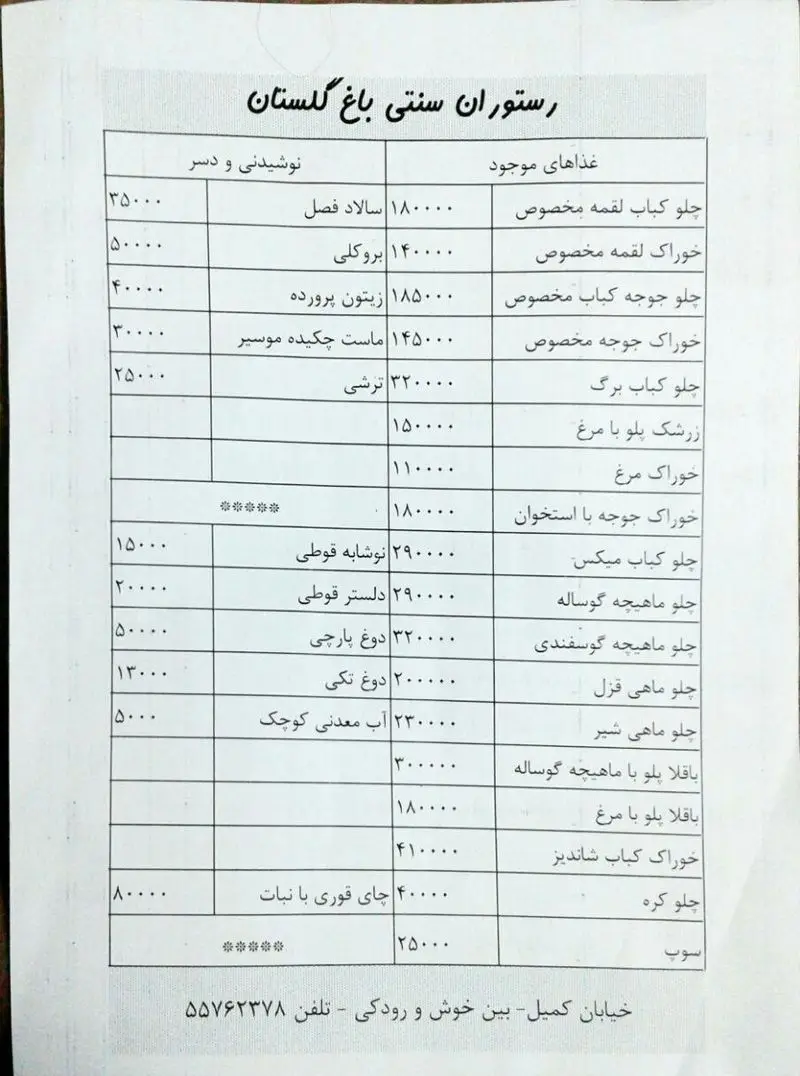 رستوران سنتی باغ گلستان
غذاهای موجود نوشیدنی و دسر
چلو کباب لقمه مخصوص ۱۸۰۰۰۰ سالاد فصل ۳۵۰۰۰
خوراک لقمه مخصوص ۱۴۰۰۰۰ بروکلی ۵۰۰۰۰
چلو جوجه کباب مخصوص ۱۸۵۰۰۰ زیتون پرورده ۴۰۰۰۰
خوراک جوجه مخصوص ۱۴۵۰۰۰ ماست چکیده موسیر ۳۰۰۰۰
چلو کباب برگ ۳۲۰۰۰۰ ترشی ۲۵۰۰۰
زرشک پلو با مرغ ۱۵۰۰۰۰
خوراک مرغ ۱۱۰۰۰۰
خوراک جوجه با استخوان ۱۸۰۰۰۰ *****
چلو کباب میکس ۲۹۰۰۰۰ نوشابه قوطی ۱۵۰۰۰
چلو ماهیچه گوساله ۲۹۰۰۰۰ دلستر قوطی ۲۰۰۰۰
چلو ماهیچه گوسفندی ۳۲۰۰۰۰ دوغ پارچی ۵۰۰۰۰
چلو ماهی قزل ۲۰۰۰۰۰ دوغ تکی ۱۳۰۰۰
چلو ماهی شیر ۲۳۰۰۰۰ آب معدنی کوچک ۵۰۰۰
باقلا پلو با ماهیچه گوساله ۳۰۰۰۰۰
باقلا پلو با مرغ ۱۸۰۰۰۰
خوراک کباب شاندیز ۴۱۰۰۰۰
چلو کره ۴۰۰۰۰ چای قوری با نبات ۸۰۰۰۰
سوپ ۲۵۰۰۰ *****
خیابان کمیل- بین خوش و رودکی - تلفن ۵۵۷۶۲۳۷۸